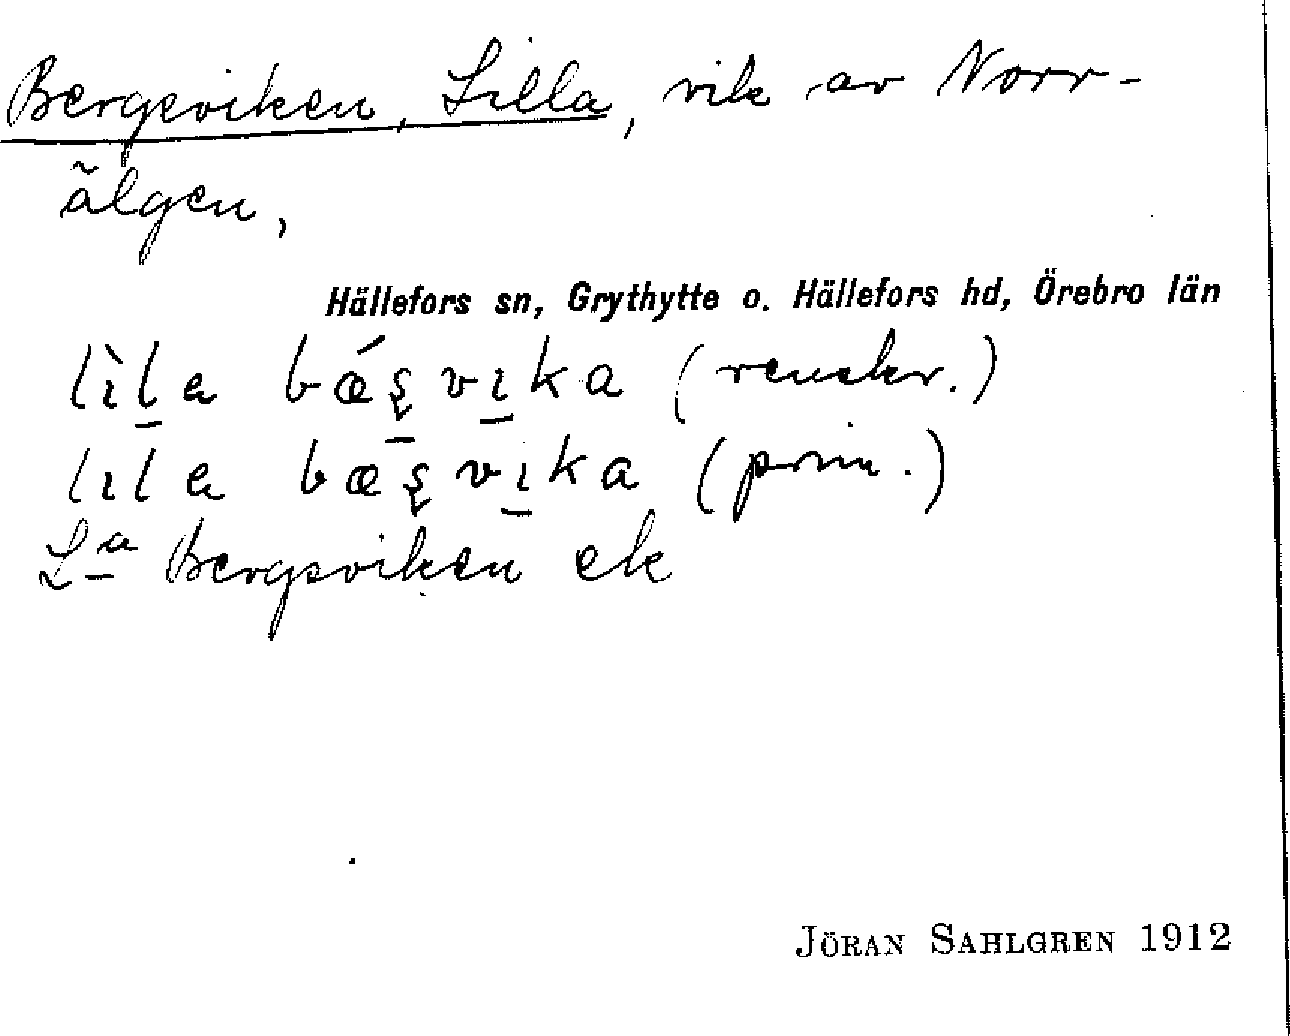 Bergsviken, Lilla, vik av Norr-
älgen,
Hällefors sn, Grythytte o. Hällefors hd, Örebro län
lìl̠a bǽş̠vı̠ka (renskr.)
lıla bæşvı̠ka (prim.)
L<u>a</u> Bergsviken ek
JÖRAN SAHLGREN 1912